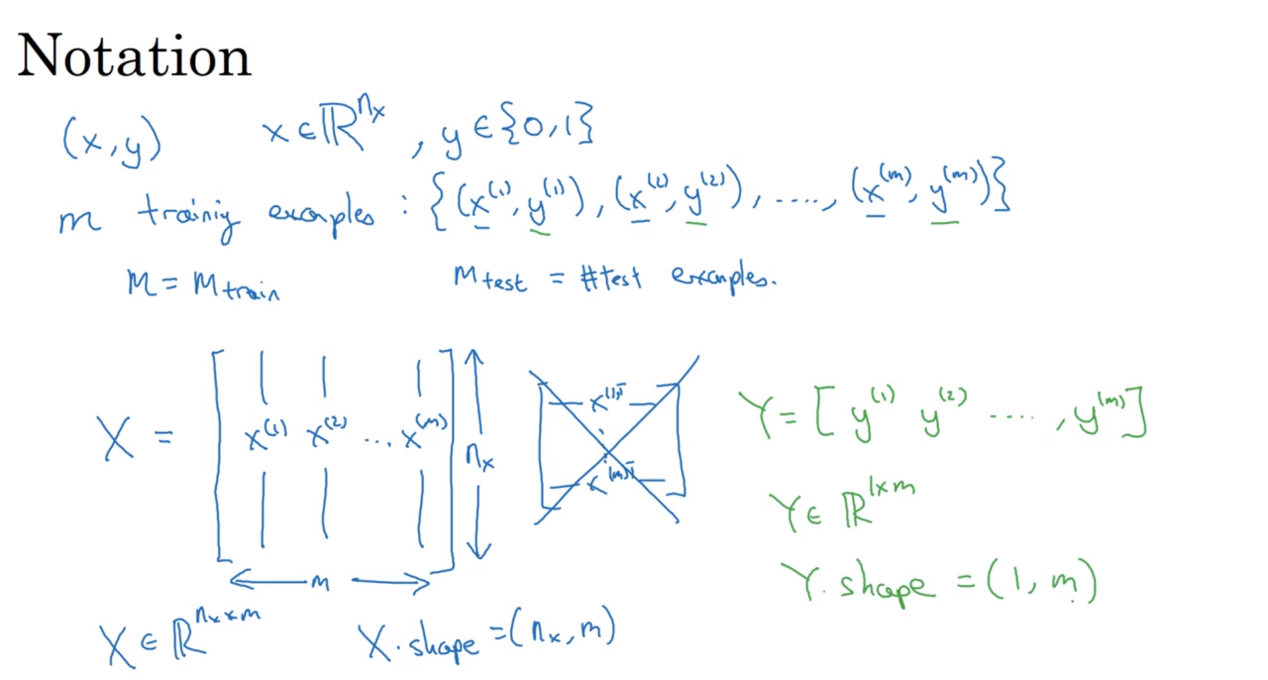 Notation
(x,y) x∈ℝ^{n_x}, y∈{0,1}
m training examples : {(x^{(1)}, y^{(1)}), (x^{(2)}, y^{(2)}), ...., (x^{(m)}, y^{(m)})}
M = M_{train} M_{test} = #test examples.
X = [ x^{(1)} x^{(2)} ... x^{(m)} ] n_x
m
x^{(1)T}
x^{(m)T}
Y = [ y^{(1)} y^{(2)} ..... , y^{(m)} ]
Y∈ ℝ^{1×m}
Y.shape = (1, m)
X ∈ ℝ^{n_x×m} X.shape = (n_x, m)